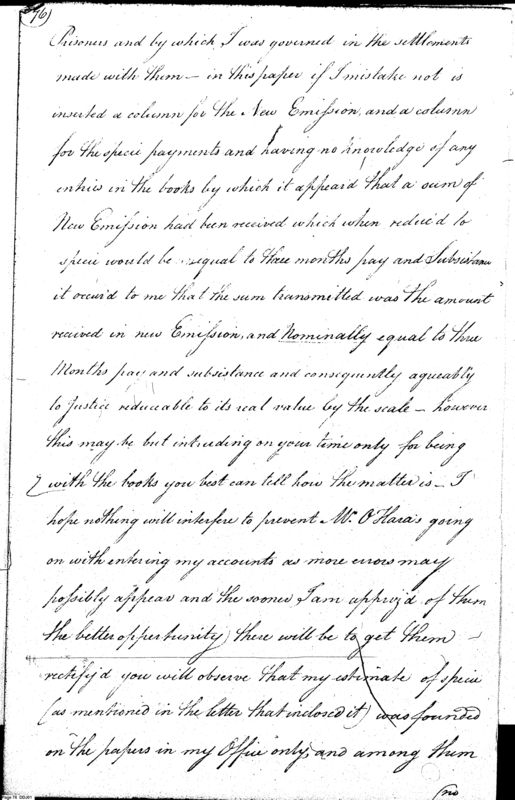 76)
Prisoners and by which I was governed in the settlements
made with them — in this paper if I mistake not is
inserted a column for the New Emission, and a column
for the specie payments and having no knowledge of any
entries in the books by which it appeard that a sum of
New Emission had been received which when reduc'd to
specie would be equal to three months pay and Subsistance
it occur'd to me that the sum transmitted was the amount
received in new Emission, and Nominally equal to three
Months pay and subsistance and consequently agreeably
to Justice reduceable to its real value by the scale — however
this may be but intruding on your time only for being
with the books you best can tell how the matter is — I
hope nothing will interfere to prevent Mr. O'Hara's going
on with entering my accounts as more errors may
possibly appear and the sooner I am appriz'd of them
the better oppertunity there will be to get them —
rectify'd you will observe that my estimate of specie
(as mentioned in the letter that inclosed it) was founded
on the papers in my Office only, and among them
no
Page 76